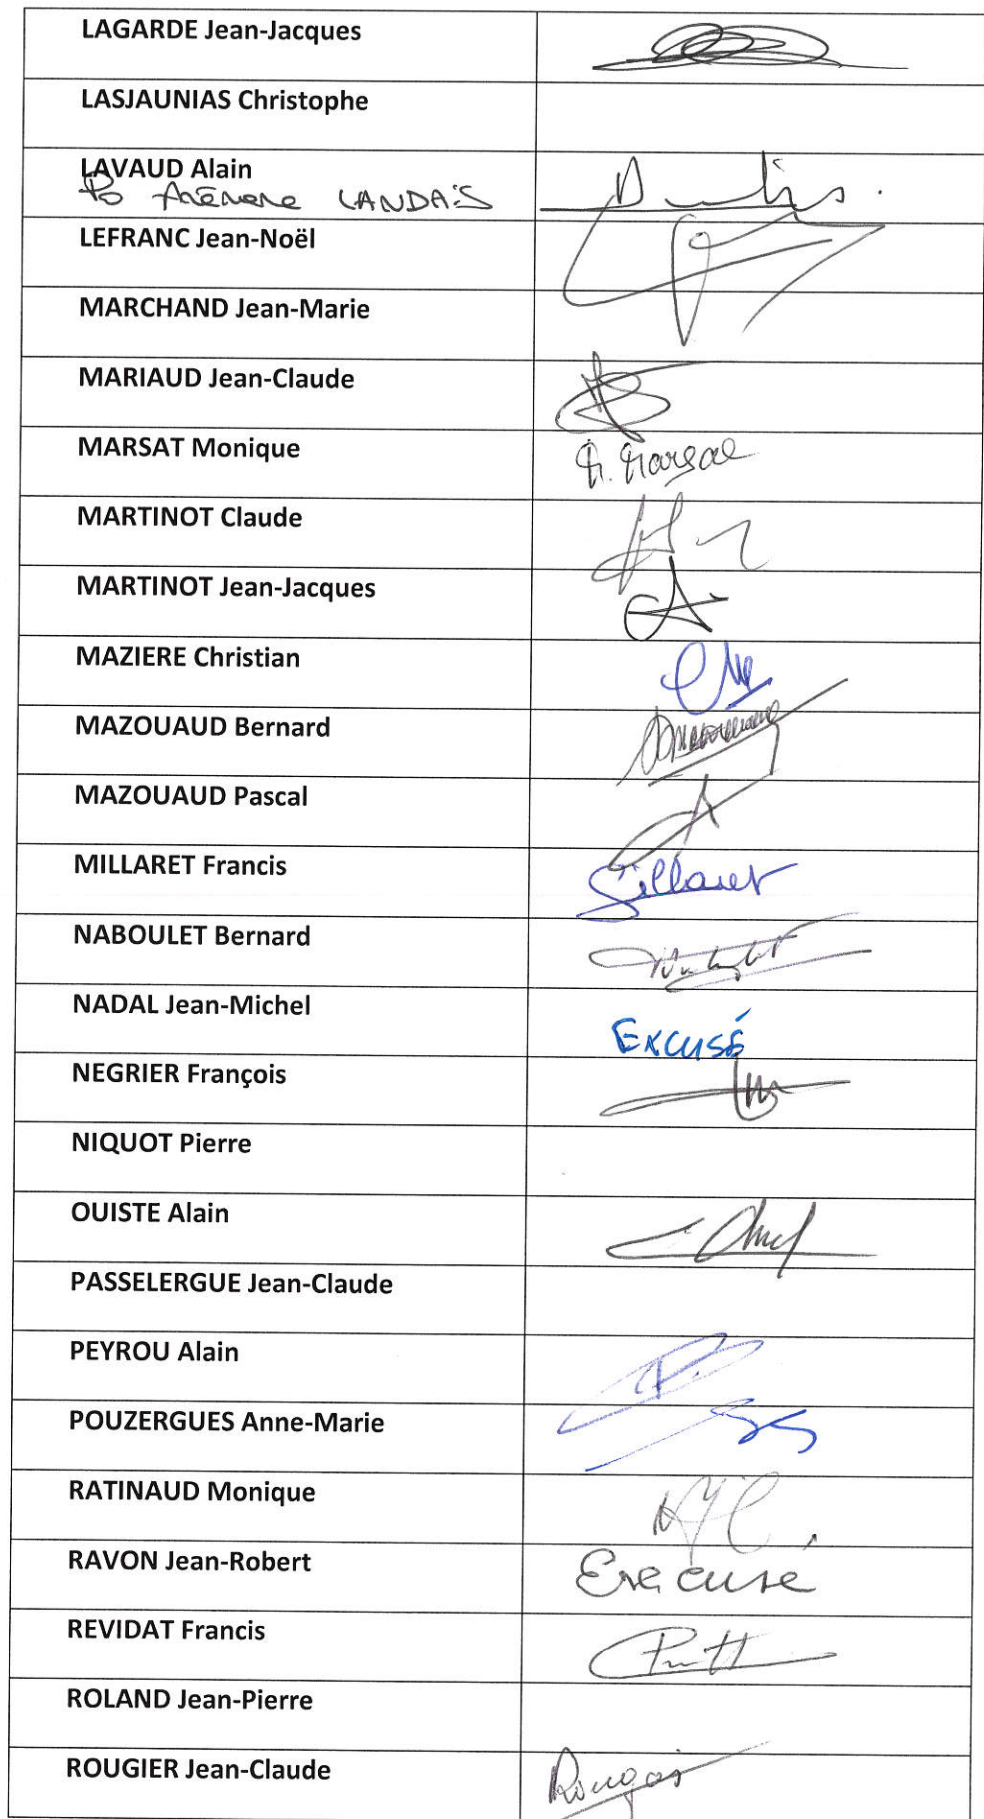 LAGARDE Jean-Jacques
LASJAUNIAS Christophe
LAVAUD Alain
LANDAIS
LEFRANC Jean-Noël
MARCHAND Jean-Marie
MARIAUD Jean-Claude
MARSAT Monique
MARTINOT Claude
MARTINOT Jean-Jacques
MAZIERE Christian
MAZOUAUD Bernard
MAZOUAUD Pascal
MILLARET Francis
NABOULET Bernard
NADAL Jean-Michel
EXCUSÉ
NEGRIER François
NIQUOT Pierre
OUISTE Alain
PASSELERGUE Jean-Claude
PEYROU Alain
POUZERGUES Anne-Marie
RATINAUD Monique
RAVON Jean-Robert
Excusé
REVIDAT Francis
ROLAND Jean-Pierre
ROUGIER Jean-Claude